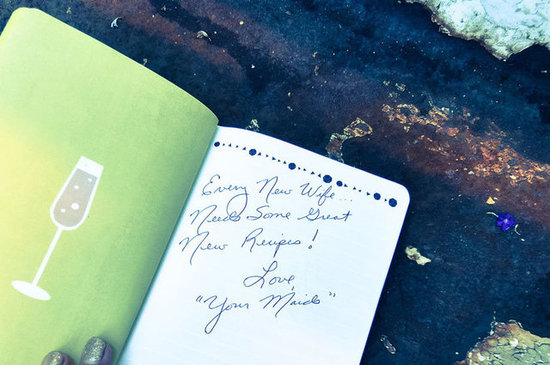 Every New Wife...
Needs Some Great
New Recipes!
Love,
"Your Maids"